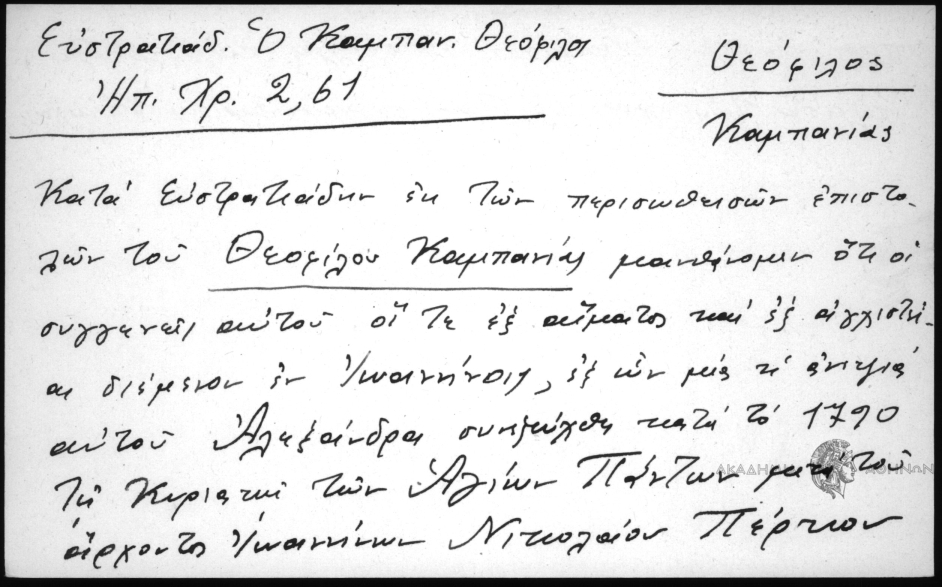 Εὐστρατιάδ. Ὁ Καμπαν. Θεόφιλος
Ἠπ. Χρ. 2, 61
Θεόφιλος
Καμπανίας
Κατά Εὐστρατιάδην ἐκ τῶν περισωθεισῶν ἐπιστο-
λῶν τοῦ Θεοφίλου Καμπανίας μανθάνομεν ὅτι οἱ
συγγενεῖς αὐτοῦ οἵ τε ἐξ αἵματος καί ἐξ ἀγχιστεί-
ας διέμενον ἐν Ἰωαννίνοις, ἐξ ὧν μία τις ἀνεψιά
αὐτοῦ Ἀλεξάνδρα συνεζεύχθη κατά τό 1790
τῇ Κυριακῇ τῶν Ἁγίων Πάντων μετά τοῦ
ἄρχοντος Ἰωαννίνων Νικολάου Πέρτιου
ΑΚΑΔΗΜΙΑ ΑΘΗΝΩΝ